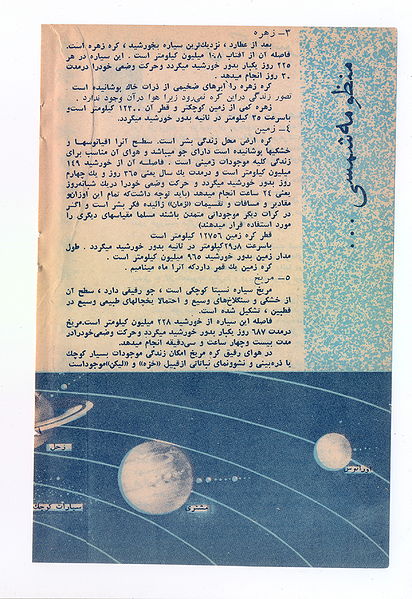 منظومه شمسی ...
۳- زهره
بعد از عطارد ، نزدیك‌ترین سیاره بخورشید ، كره زهره است.
فاصله آن از آفتاب ۱۰۸ میلیون كیلومتر است . این سیاره در هر
۲۲۵ روز یكبار بدور خورشید میگردد وحركت وضعی خودرا درمدت
۳۰ روز انجام میدهد .
كره زهره را ابرهای ضخیمی از ذرات خاك پوشانیده است
تصور زندگی دراین كره نمی‌رود زیرا هوا درآن وجود ندارد .
زهره كمی از زمین كوچكتر و قطر آن ۱۲۳۰۰ كیلومتر است‌و
باسرعت ۳۵ كیلومتر در ثانیه بدور خورشید میگردد.
۴- زمین
كره ارض محل زندگی بشر است. سطح آنرا اقیانوسها و
خشكیها پوشانیده است دارای جو میباشد و هوای آن مناسب برای
زندگی كلیه موجودات زمینی است . فاصله آن از خورشید ۱۴۹
میلیون كیلومتر است و درمدت یك سال یعنی ۳۶۵ روز و یك چهارم
روز بدور خورشید میگردد و حركت وضعی خودرا دریك شبانه‌روز
یعنی ۲۴ ساعت انجام میدهد (باید توجه داشت‌كه تمام این اوزان‌و
مقادیر و مسافات و تقسیمات (زمان) زائیده فكر بشر است و اگر
در كرات دیگر موجوداتی متمدن باشند مسلما مقیاسهای دیگری را
مورد استفاده قرار میدهند)
قطر كره زمین ۱۲۷۵۶ كیلومتر است
باسرعت ۲۹٫۸كیلومتر در ثانیه بدور خورشید میگردد . طول
مدار زمین بدور خورشید ۹۶۵ میلیون كیلومتر است .
كره زمین یك قمر داردكه آنرا ماه مینامیم .
۵- مریخ
مریخ سیاره نسبتا كوچكی است ، جو رقیقی دارد ، سطح آن
از خشكی و سنگلاخ‌های وسیع و احتمالا یخچالهای طبیعی وسیع در
قطبین ، تشكیل شده است.
فاصله این سیاره از خورشید ۲۲۸ میلیون كیلومتر است.مریخ
درمدت ۶۸۷ روز یكبار بدور خورشید میگردد وحركت وضعی‌خودرادر
مدت بیست وچهار ساعت و سی‌دقیقه انجام میدهد.
در هوای رقیق كره مریخ امكان زندگی موجودات بسیار كوچك
یا ذره‌بینی و نشوونمای نباتاتی ازقبیل «خزه» و «لیكن»موجوداست
زحل
اورانوس
مشتری
سیارات كوچك